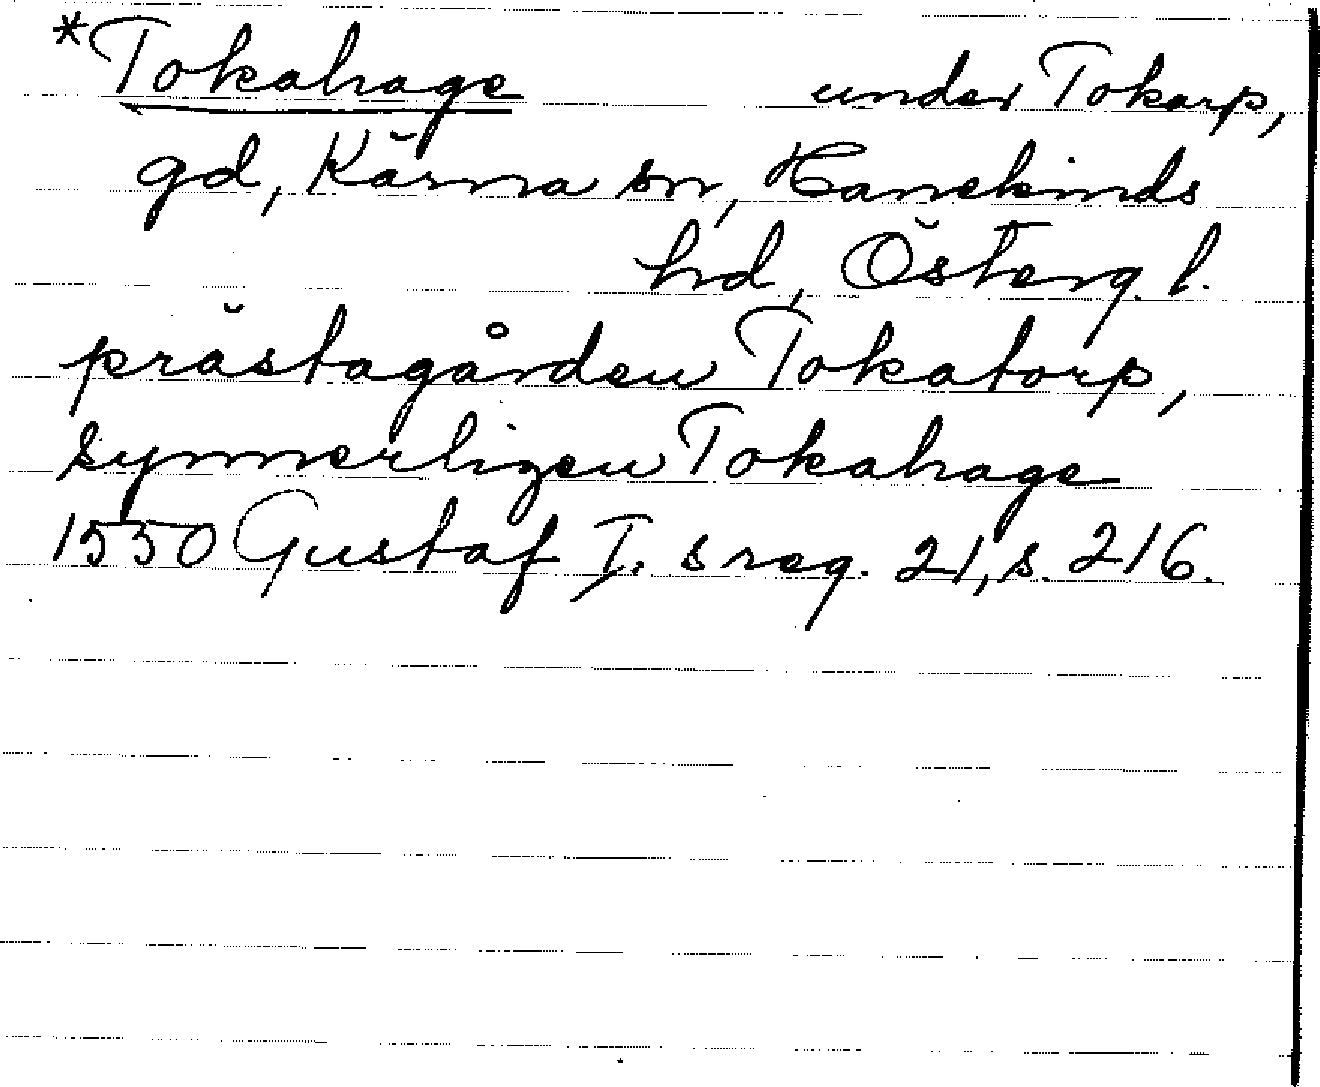 *Tokahage under Tokarp,
gd, Kärna sn, Hanekinds
hd, Österg. l.
prästagården Tokatorp,
synnerligen Tokahage
1550 Gustaf I. s reg. 21, s. 216.